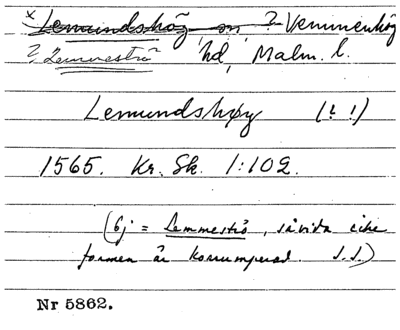 x Lemundshög sn ? Vemmenhög
? Lemmeströ hd, Malm. l.
Lemundshøy (? !)
1565. Kr. Sk. 1:102.
(Ej = Lemmeströ, såvida icke
formen är korrumperad. J.S.)
Nr 5862.